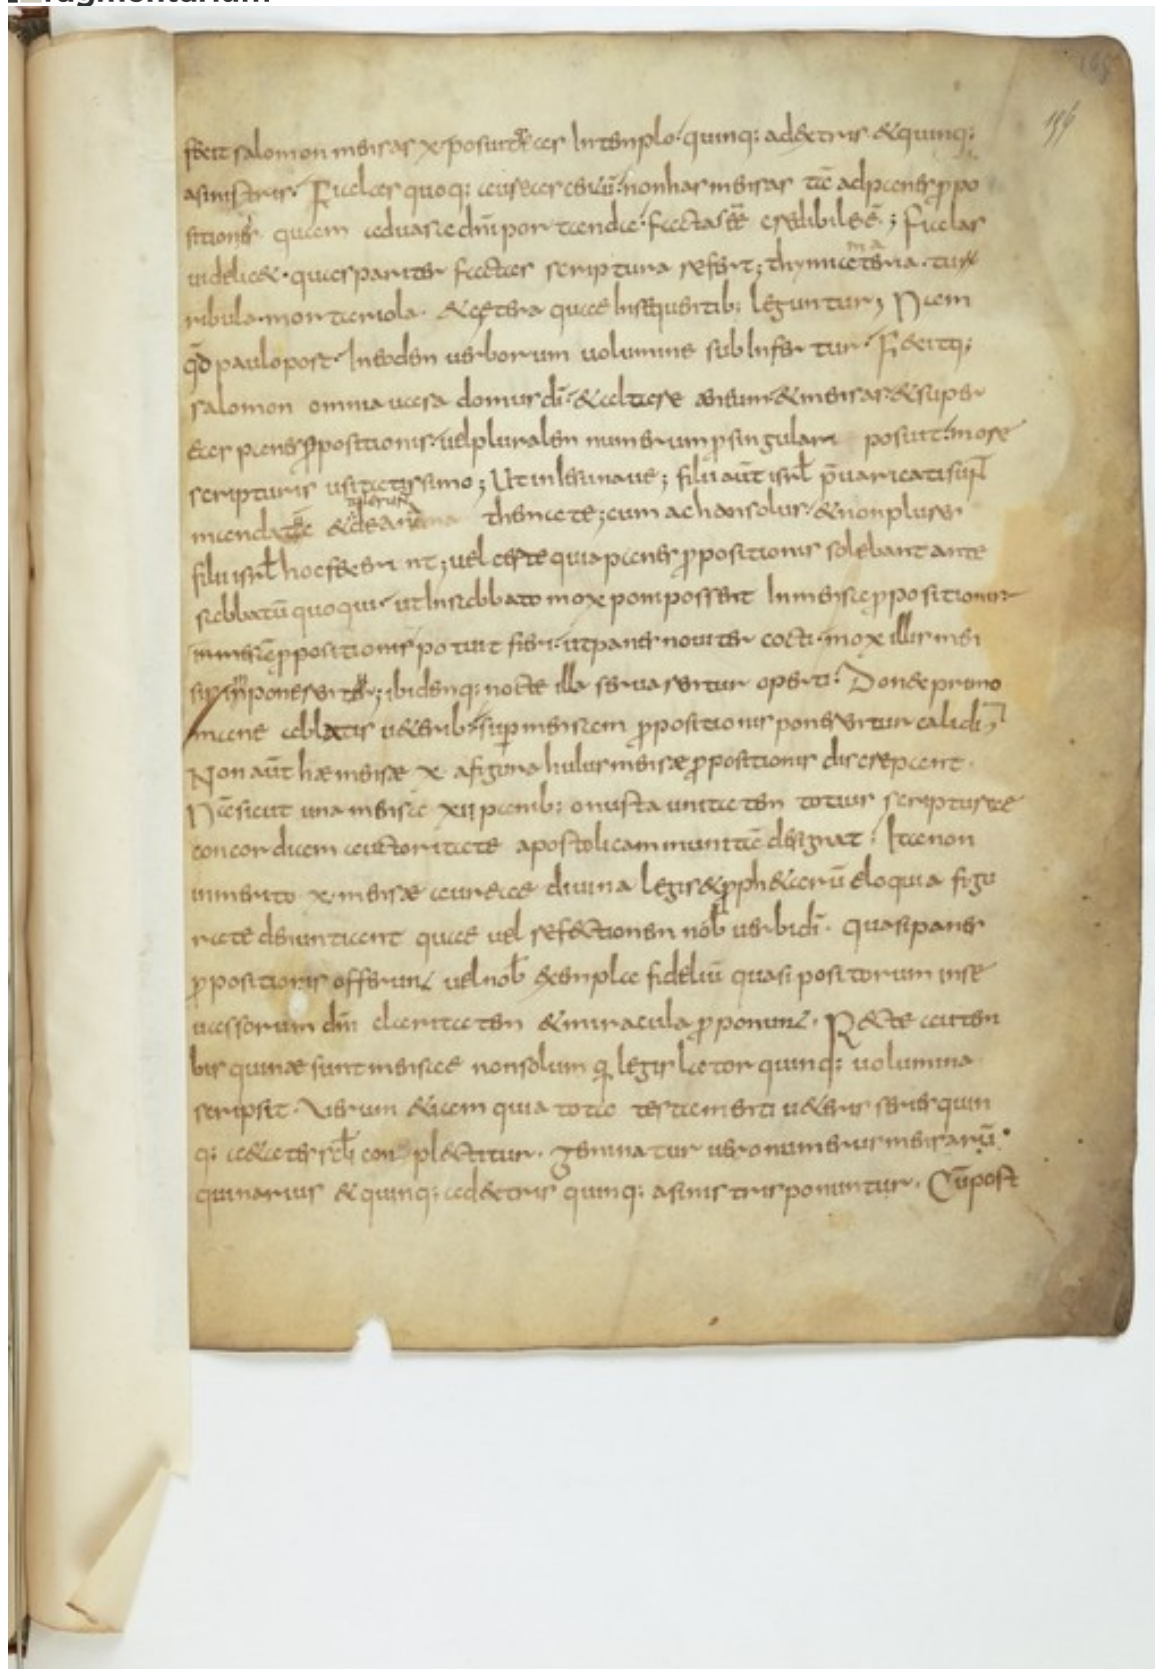 fecit salomon mensas x. posuit eas In templo. quinq; ad dextris &quinq;
asinistris. Fialas quoq; aureas centū. non has mensas tā ad panes ppo
sitionis quam ad uasa dn̄i portanda. factas eē credibile ē; Fialas
uidelic&. quas pariter factas scriptura refert; thymiateria. tu
ribula. mortariola. &cetera quae Insequentib; leguntur; Nam
qd̄ paulo post. Ineodem uerborum uolumine subInfertur. Fecitq;
salomon omnia uasa domus dī. &altare aureum. &mensas. &super
eas panes ppositionis. uel pluralem numerum p singulari posuit. more
scripturis usitatissimo; Ut in Iesu naue; filii aūt isrl̄ p̄uaricati sun̄
mandatū themate; cum achan solus. &non plures
filii isrl̄ hoc fecerint; uel certe quia panes ppositionis solebant ante
sabbatū quoqui. ut In sabbato mox pom possent In mensa ppositionis
ppositionis potuit fieri. ut panes nouiter cocti. mox illis
ponerentur; ibidemq; nocte illa seruarentur operti. Donec primo
mane ablatis ueterib; sup mensam ppositionis ponerentur calidi;
Non aūt hae mensae x. afigura huius mensae ppositionis discrepant.
Nā sicut una mensa xii panib; onusta unitatem totius scripturae
concordiam auctoritate apostolica munitā designat. Ita non
inmerito x. mensae aureae diuina legis &pph&arū eloquia figu
rate denuntiant quae uel refectionem nob̄ uerbi dī. quasi panes
ppositionis offerun̄t uel nob̄ exempla fideliū quasi positorum inse
uassorum dn̄i claritatem &miracula pponun̄t. Recte autem
bis quinae sunt mensae non solum q legis lator quinq; uolumina
scripsit. Uerum &iam quia tota testamenti ueteris series quin
q; aetates scl̄i complectitur. Geminatur uero numerus mensarū.
quinarius & quinq; addextris quinq; asinistris ponuntur. Cū post